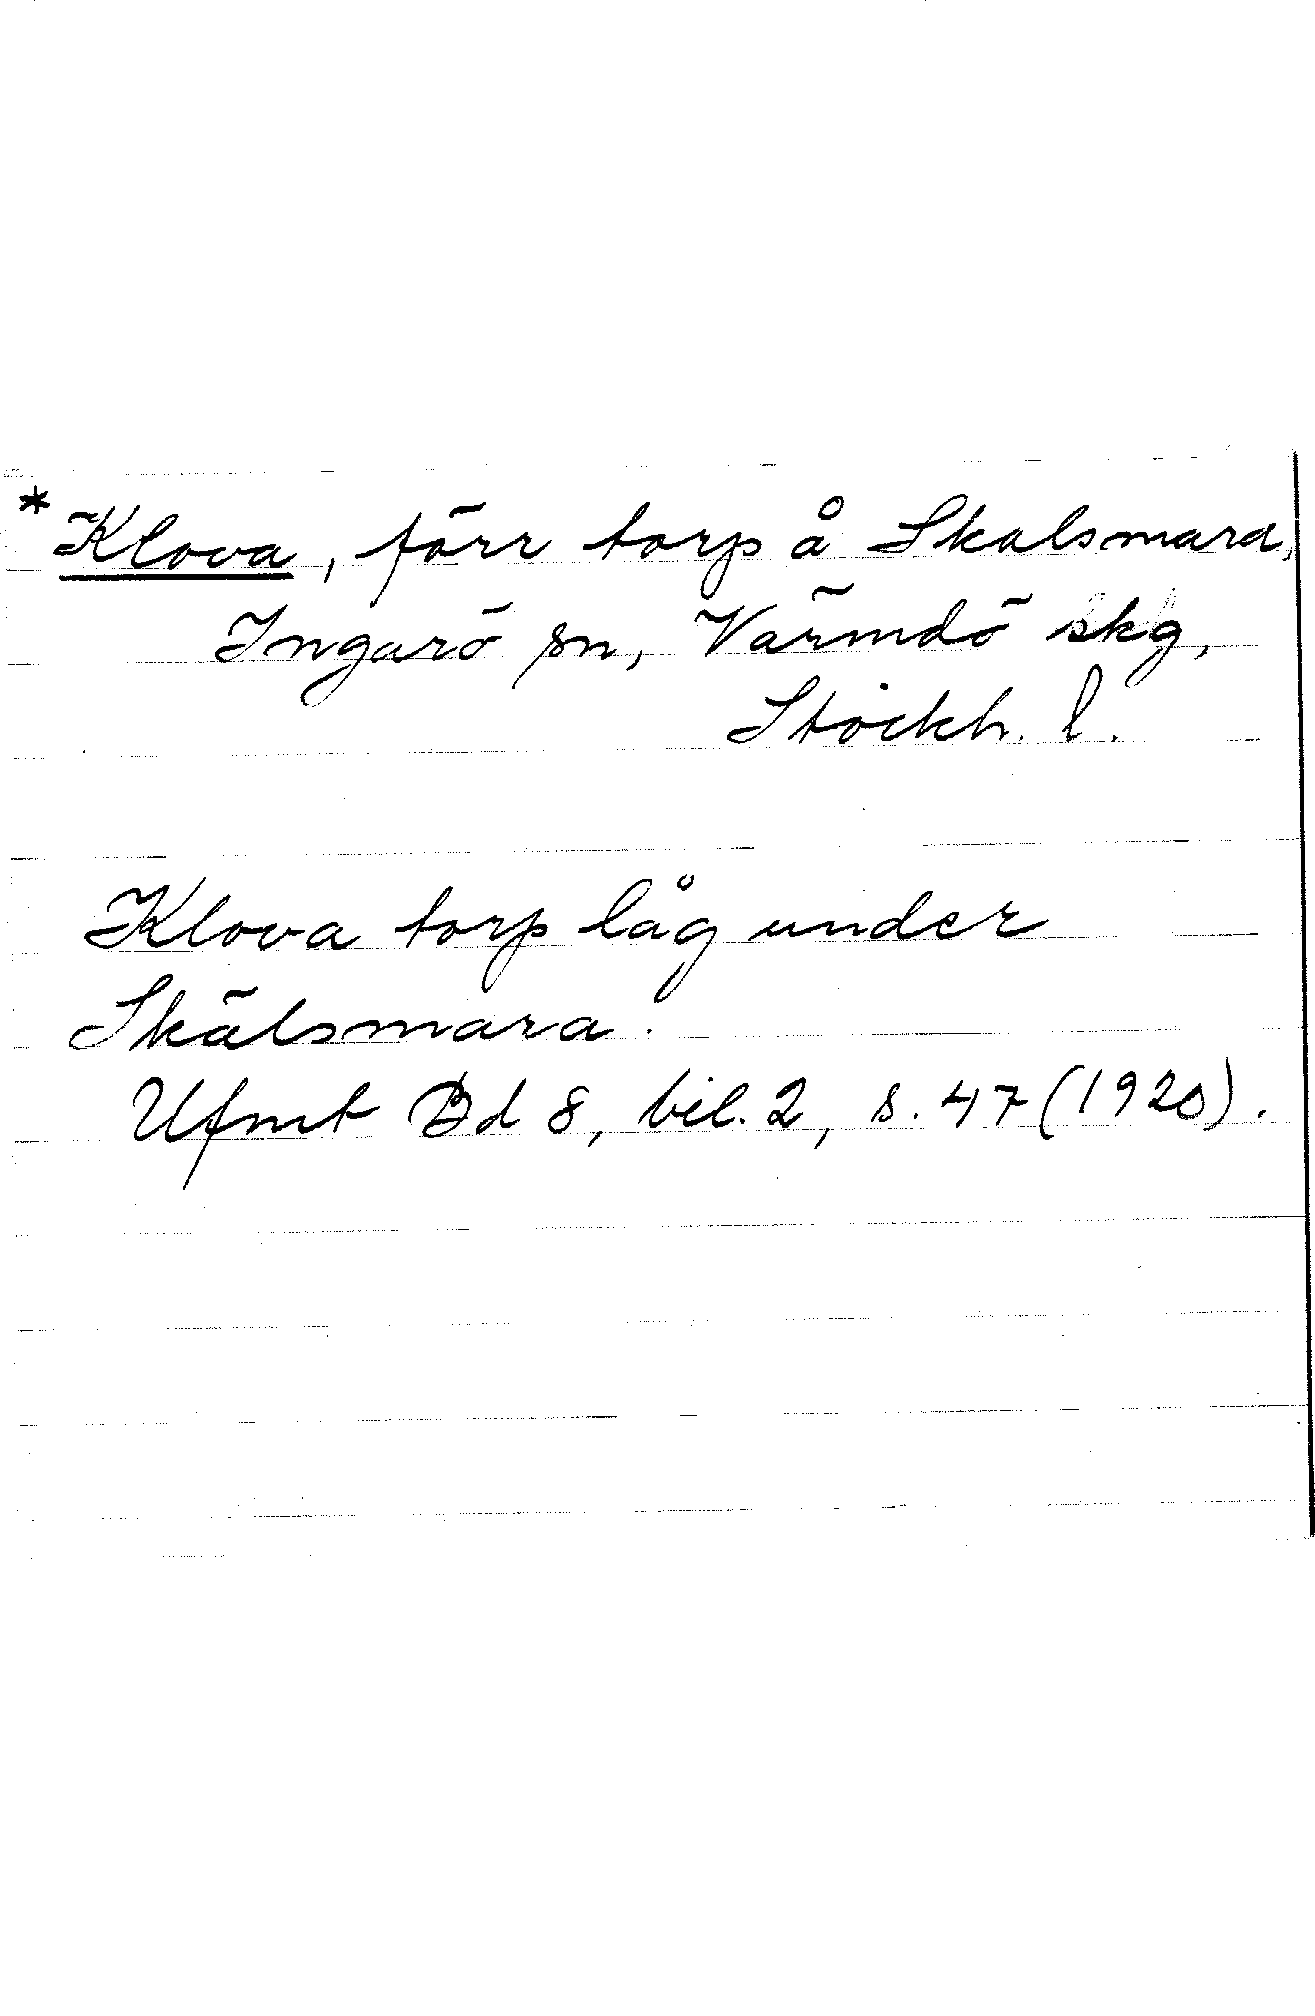 * Klova, förr torp å Skalsmara,
Ingarö sn, Värmdö skg,
Stockh. l.
Klova torp låg under
Skälsmara.
Ufmt Bd 8, bil. 2, s. 47 (1920).